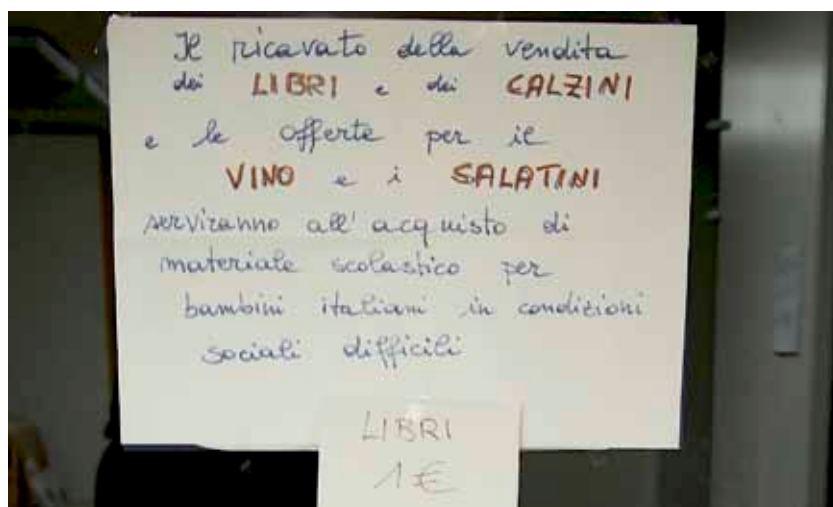 Il ricavato della vendita
dei LIBRI e dei CALZINI
e le offerte per il
VINO e i SALATINI
serviranno all'acquisto di
materiale scolastico per
bambini italiani in condizioni
sociali difficili
LIBRI
1 €